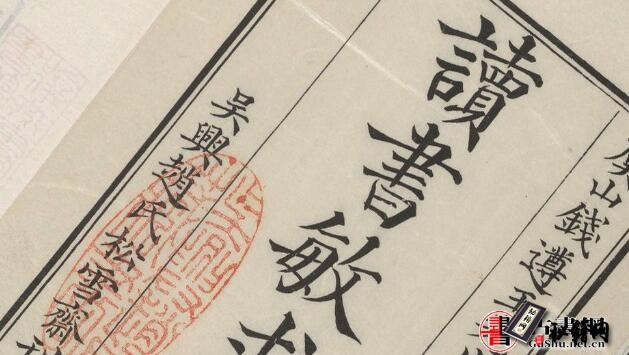 山錢遵王
讀書敏求
吳興趙氏松雪齋
GuShu.net.cn